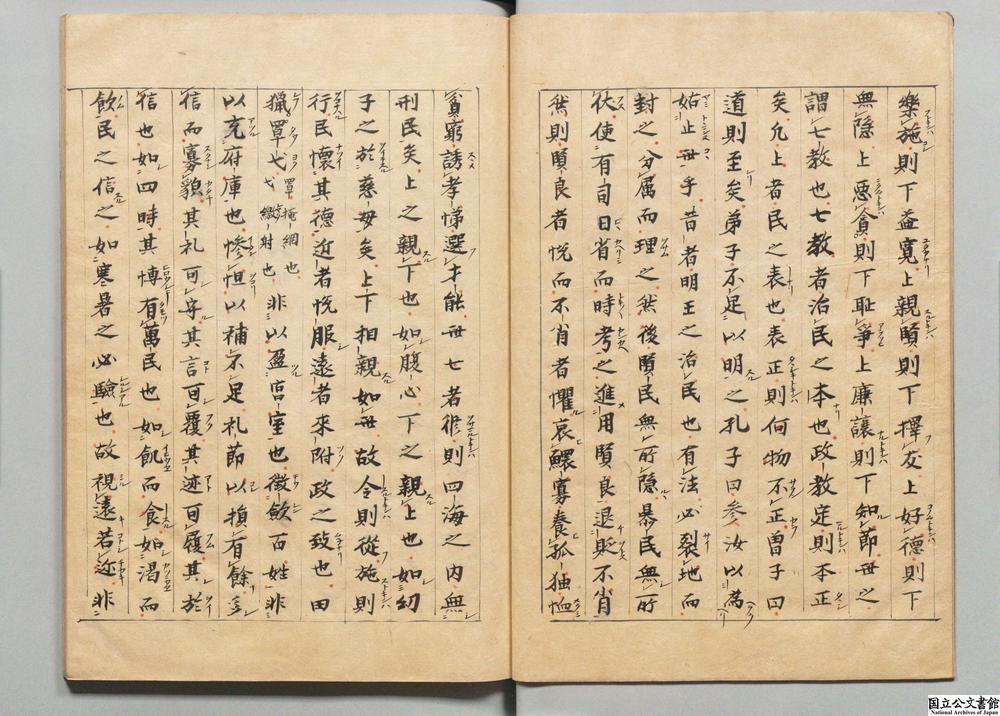 樂施則下益寬上親賢則下擇友上好德則下
無隱上惡貪則下恥爭上廉讓則下知節世之
謂七教也七教者治民之本也政教定則本正
矣凢上者民之表也表正則何物不正曽子曰
道則至矣弟子不足以明之孔子曰参汝以為
姑止世乎昔者明王之治民也有法必裂地而
封之分属而理之然後賢民無所隱暴民無所
伏使有司日省而時考之進用賢良退貶不肖
然則賢良者悦而不肖者懼哀鰥寡養孤独恤
貧窮誘孝悌選才能世七者脩則四海之内無
刑民矣上之親下也如腹心下之親上也如幼
子之於慈母矣上下相親如世故令則從施則
行民懷其德近者悦服遠者來附政之致也田
獵罩弋罩掩網也弋繳射也非以盈宮室也徴斂百姓非
以充府庫也慘怛以補不足礼節以損有餘多
信而寡貌其礼可守其言可覆其迹可履其於
信也如四時其博有萬民也如飢而食如渇而
飲民之信之如寒暑之必驗也故視遠若迩非
国立公文書館
National Archives of Japan